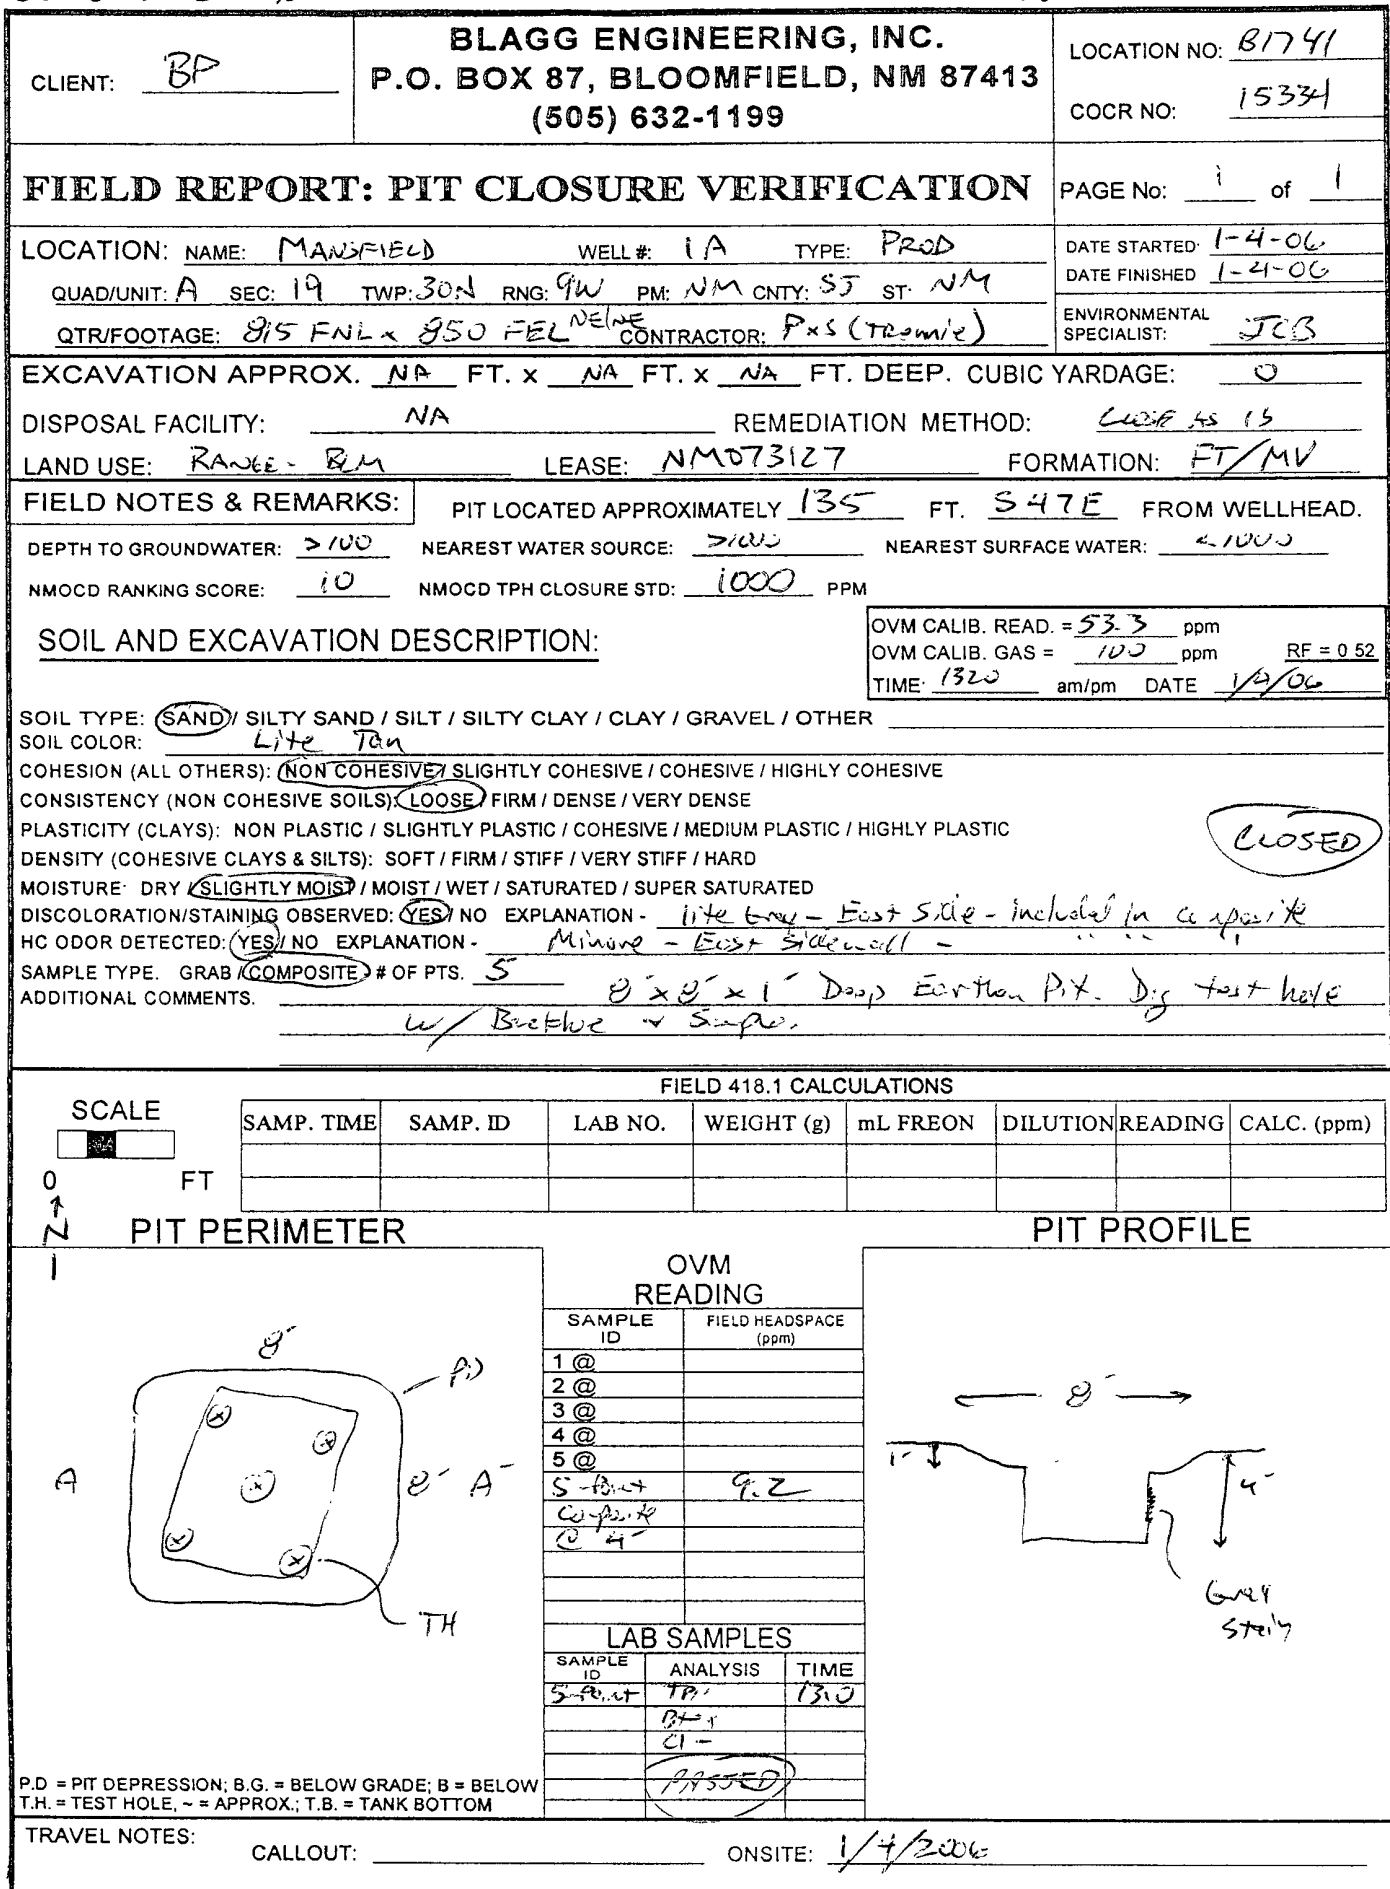 BLAGG ENGINEERING, INC.
P.O. BOX 87, BLOOMFIELD, NM 87413
(505) 632-1199
CLIENT: BP
LOCATION NO: B1741
COCR NO: 15334
FIELD REPORT: PIT CLOSURE VERIFICATION
PAGE No: 1 of 1
LOCATION: NAME: MANSFIELD WELL #: 1A TYPE: PROD
QUAD/UNIT: A SEC: 19 TWP: 30N RNG: 9W PM: NM CNTY: SJ ST: NM
QTR/FOOTAGE: 815 FNL x 850 FEL NE/NE CONTRACTOR: PxS (
DATE STARTED: 1-4-06
DATE FINISHED 1-4-06
ENVIRONMENTAL SPECIALIST: JCB
EXCAVATION APPROX. NA FT. x NA FT. x NA FT. DEEP. CUBIC YARDAGE: 0
DISPOSAL FACILITY: NA REMEDIATION METHOD: CLOSE AS IS
LAND USE: RANGE - BLM LEASE: NM073127 FORMATION: FT/MV
FIELD NOTES & REMARKS: PIT LOCATED APPROXIMATELY 135 FT. S47E FROM WELLHEAD.
DEPTH TO GROUNDWATER: >100 NEAREST WATER SOURCE: >1000 NEAREST SURFACE WATER: <1000
NMOCD RANKING SCORE: 10 NMOCD TPH CLOSURE STD: 1000 PPM
SOIL AND EXCAVATION DESCRIPTION:
OVM CALIB. READ. = 53.3 ppm
OVM CALIB. GAS = 100 ppm RF = 0 52
TIME: 1320 am/pm DATE 1/4/06
SOIL TYPE: SAND / SILTY SAND / SILT / SILTY CLAY / CLAY / GRAVEL / OTHER
SOIL COLOR: Lite Tan
COHESION (ALL OTHERS): NON COHESIVE / SLIGHTLY COHESIVE / COHESIVE / HIGHLY COHESIVE
CONSISTENCY (NON COHESIVE SOILS): LOOSE / FIRM / DENSE / VERY DENSE
PLASTICITY (CLAYS): NON PLASTIC / SLIGHTLY PLASTIC / COHESIVE / MEDIUM PLASTIC / HIGHLY PLASTIC
DENSITY (COHESIVE CLAYS & SILTS): SOFT / FIRM / STIFF / VERY STIFF / HARD
CLOSED
MOISTURE: DRY / SLIGHTLY MOIST / MOIST / WET / SATURATED / SUPER SATURATED
DISCOLORATION/STAINING OBSERVED: YES / NO EXPLANATION - lite Gray - East Side - included in composite
HC ODOR DETECTED: YES / NO EXPLANATION - Minor - East sidewall - " " "
SAMPLE TYPE. GRAB / COMPOSITE # OF PTS. 5
ADDITIONAL COMMENTS. 8' x 8' x 1' Deep Earthen Pit. Dig test hole
w/ Backhoe & Sample.
FIELD 418.1 CALCULATIONS
SCALE
0 FT
SAMP. TIME SAMP. ID LAB NO. WEIGHT (g) mL FREON DILUTION READING CALC. (ppm)
N
PIT PERIMETER
PIT PROFILE
OVM READING
SAMPLE ID FIELD HEADSPACE (ppm)
1 @
2 @
3 @
4 @
5 @
5-Point 9.2
Composite
@ 4'
8'
PD
A 8' A'
TH
8'
1' 4'
Gray
Stain
LAB SAMPLES
SAMPLE ID ANALYSIS TIME
5-Point TPH 1310
Btex
Cl-
PASSED
P.D = PIT DEPRESSION; B.G. = BELOW GRADE; B = BELOW
T.H. = TEST HOLE, ~ = APPROX.; T.B. = TANK BOTTOM
TRAVEL NOTES:
CALLOUT: ONSITE: 1/4/2006